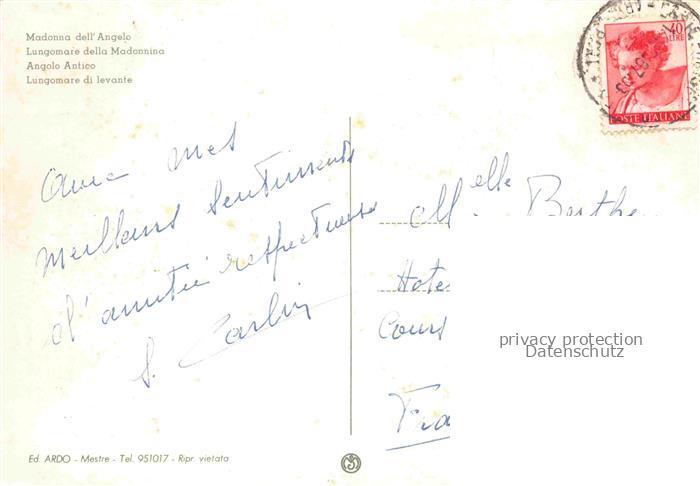 Madonna dell'Angelo
Lungomare della Madonnina
Angolo Antico
Lungomare di levante
40
LIRE
POSTE ITALIANE
Avec mes
Meilleurs Sentiments
d'amitié respectueuse
S. Carlin
Melle Berthe
Hote
Cours
Fra
privacy protection
Datenschutz
Ed. ARDO - Mestre - Tel. 951017 - Ripr. vietata